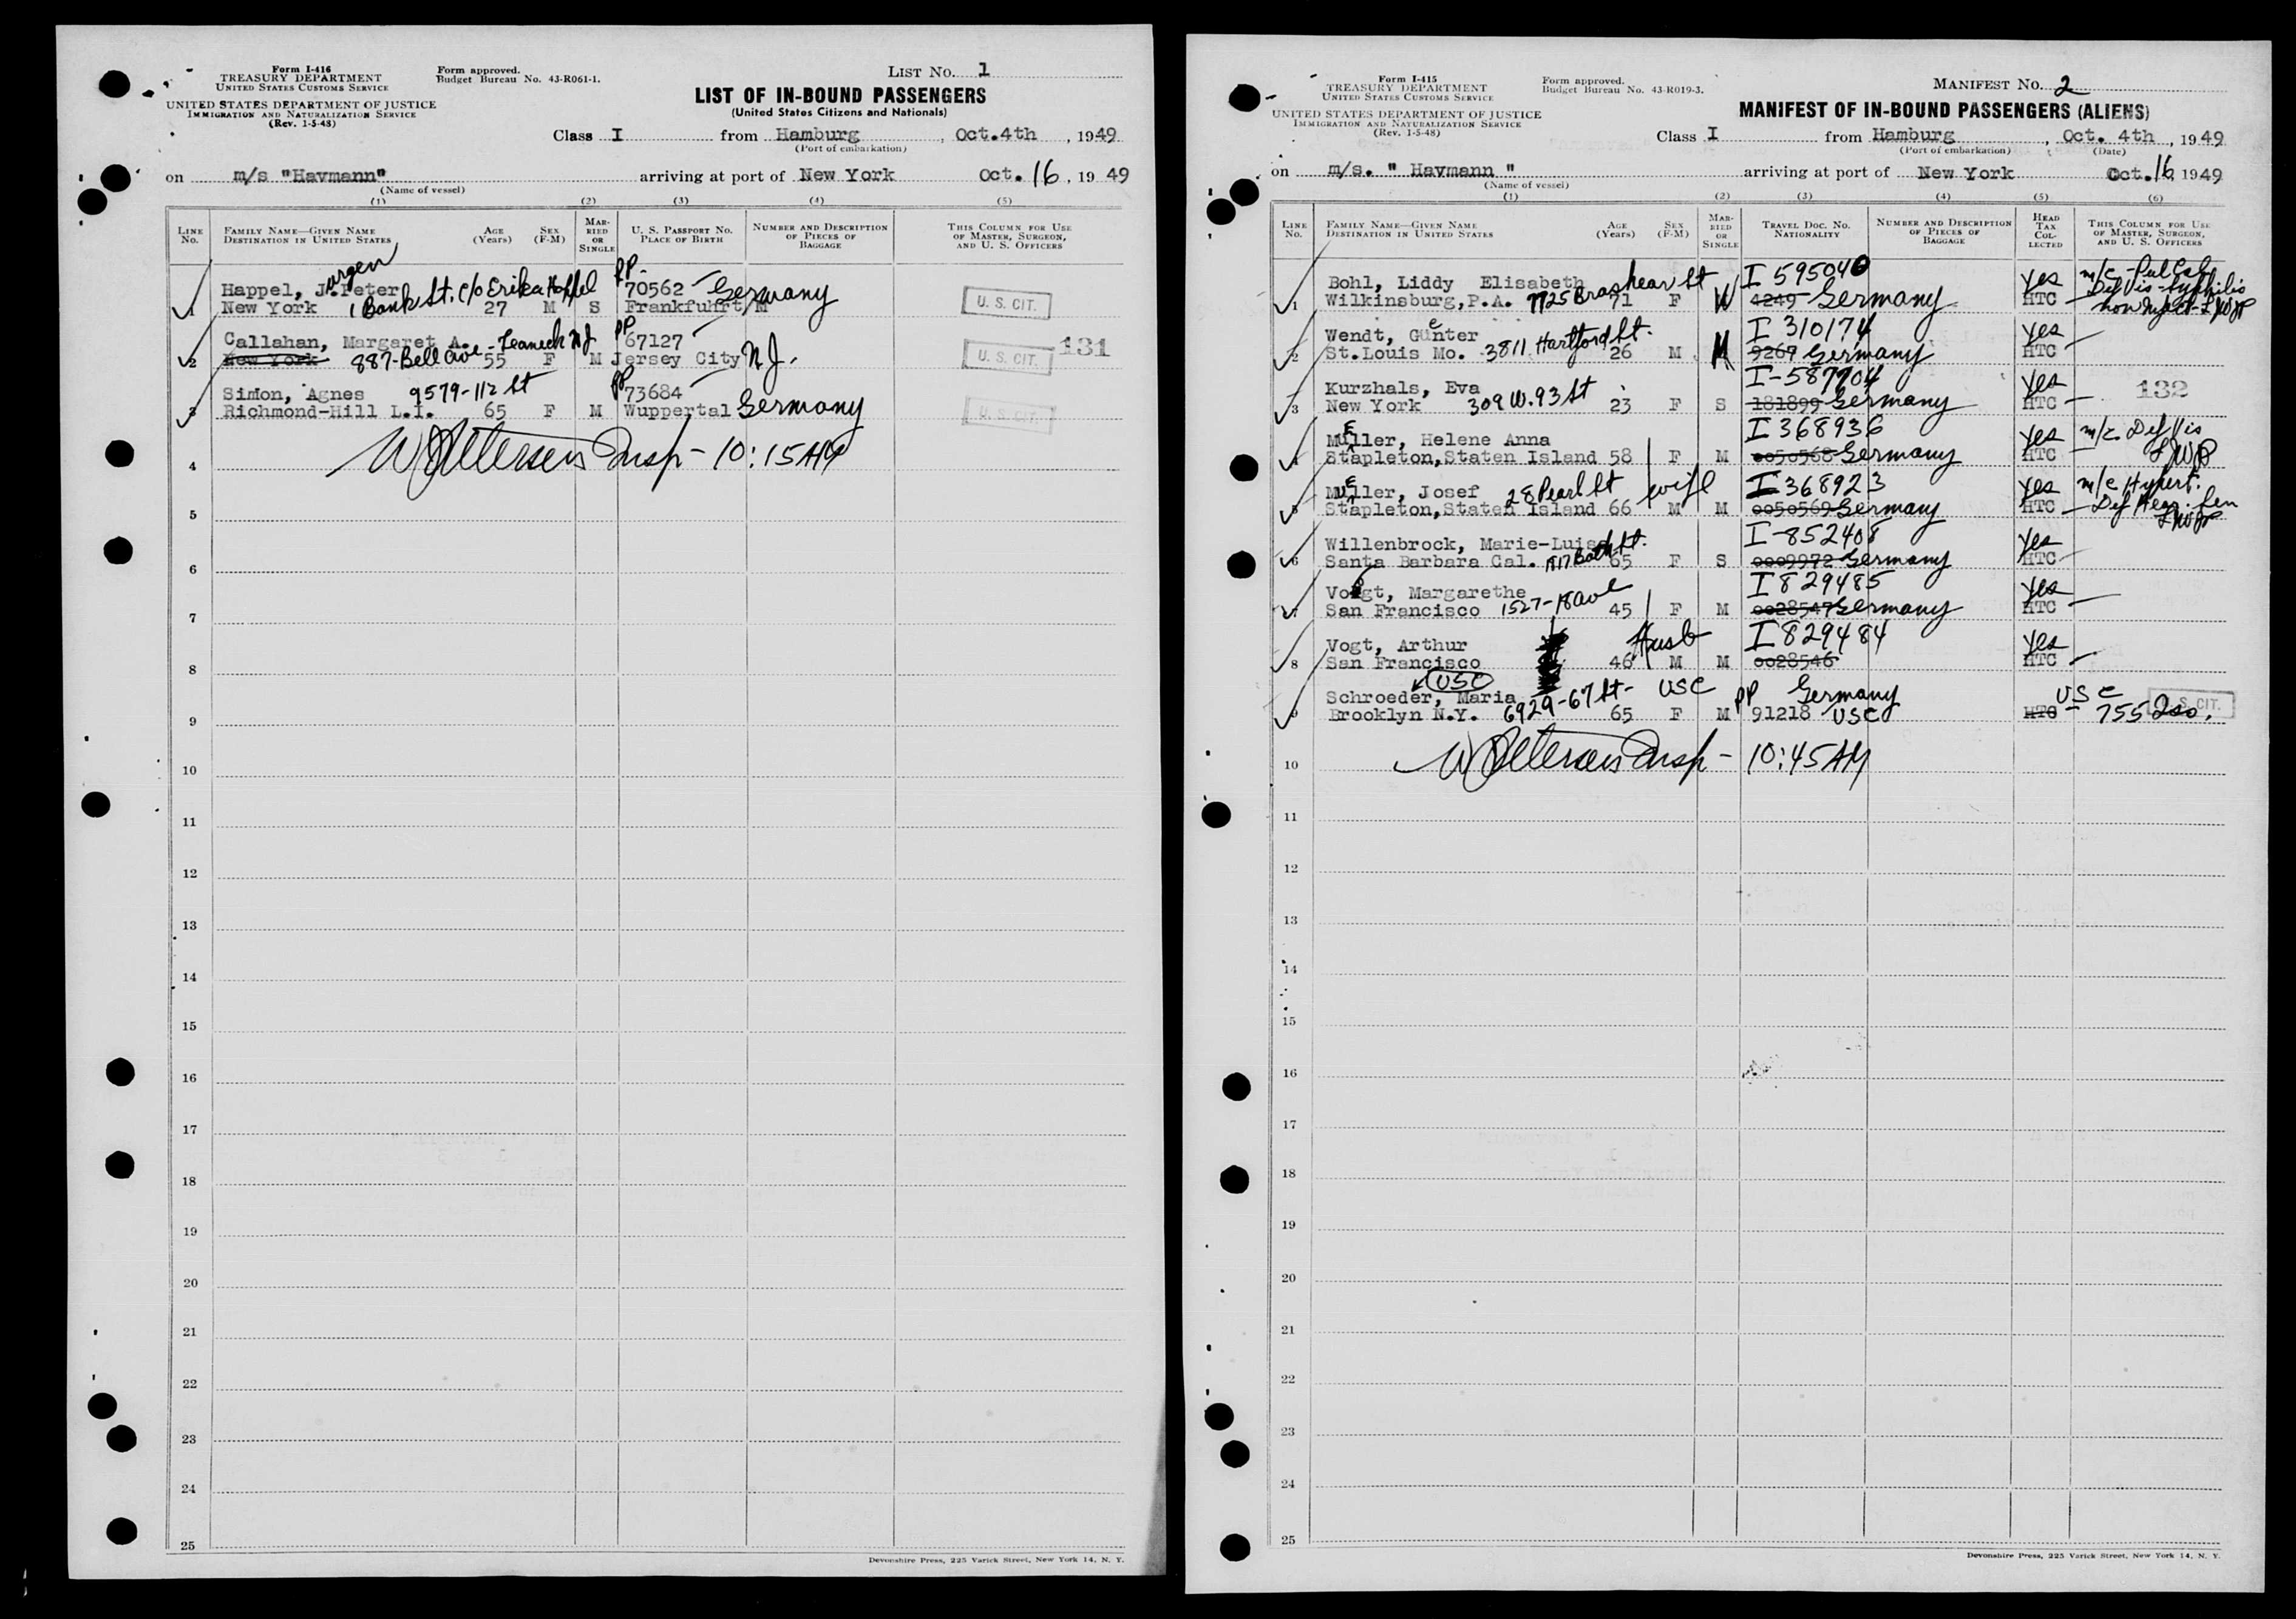 Form I-416
TREASURY DEPARTMENT
UNITED STATES CUSTOMS SERVICE
UNITED STATES DEPARTMENT OF JUSTICE
IMMIGRATION AND NATURALIZATION SERVICE
(Rev. 1-5-48)
Form approved.
Budget Bureau No. 43-R061-1.
LIST NO. 1
LIST OF IN-BOUND PASSENGERS
(United States Citizens and Nationals)
Class I from Hamburg, Oct.4th, 1949
(Port of embarkation)
on m/s "Havmann" arriving at port of New York Oct. 16, 1949
(Name of vessel)
(1) (2) (3) (4) (5)
LINE No. FAMILY NAME—GIVEN NAME DESTINATION IN UNITED STATES AGE (Years) SEX (F-M) MARRIED OR SINGLE U. S. PASSPORT NO. PLACE OF BIRTH NUMBER AND DESCRIPTION OF PIECES OF BAGGAGE THIS COLUMN FOR USE OF MASTER, SURGEON, AND U. S. OFFICERS
urgen PP
Happel, J. Peter 70562 - Germany
1 New York 1 Bank St. c/o Erika Happel 27 M S Frankfuhrt/M U. S. CIT.
Callahan, Margaret A. - Teaneck NJ PP 67127
2 New York 887-Bell Ave 55 F M Jersey City N.J. U. S. CIT. 131
Simon, Agnes 9579-112 St PP 73684
3 Richmond-Hill L.I. 65 F M Wuppertal Germany U. S. CIT.
4 Insp - 10:15 AM
5
6
7
8
9
10
11
12
13
14
15
16
17
18
19
20
21
22
23
24
25
Devonshire Press, 225 Varick Street, New York 14, N. Y.
Form I-415
TREASURY DEPARTMENT
UNITED STATES CUSTOMS SERVICE
UNITED STATES DEPARTMENT OF JUSTICE
IMMIGRATION AND NATURALIZATION SERVICE
(Rev. 1-5-48)
Form approved.
Budget Bureau No. 43-R019-3.
MANIFEST NO. 2
MANIFEST OF IN-BOUND PASSENGERS (ALIENS)
Class I from Hamburg, Oct. 4th, 1949
(Port of embarkation) (Date)
on m/s. " Havmann " arriving at port of New York Oct. 16, 1949
(Name of vessel)
(1) (2) (3) (4) (5) (6)
LINE No. FAMILY NAME—GIVEN NAME DESTINATION IN UNITED STATES AGE (Years) SEX (F-M) MARRIED OR SINGLE TRAVEL DOC. NO. NATIONALITY NUMBER AND DESCRIPTION OF PIECES OF BAGGAGE HEAD TAX COLLECTED THIS COLUMN FOR USE OF MASTER, SURGEON, AND U. S. OFFICERS
Bohl, Liddy Elisabeth I 595040 Yes m/c
1 Wilkinsburg,P.A. 7725 Brashear St 71 F W 4249 Germany HTC Def Vis - Syphilis
Wendt, Günter e I 310174 Yes
2 St.Louis Mo. 3811 Hartford St. 26 M M 9269 Germany HTC
Kurzhals, Eva I-587704 Yes
3 New York 309 W. 93 St 23 F S 181899 Germany HTC 132
Müller, Helene Anna E I 368936 Yes m/c Def Vis
4 Stapleton,Staten Island 58 F M 0050568 Germany HTC
Müller, Josef E 28 Pearl St wife I 368923 Yes m/c Hypert.
5 Stapleton,Staten Island 66 M M 0050569 Germany HTC Def Hear.
Willenbrock, Marie-Luise I-852408 Yes
6 Santa Barbara Cal. 1417 Bath St. 65 F S 0009972 Germany HTC
Vogt, Margarethe I 829485 Yes
7 San Francisco 1527-18 Ave 45 F M 0028547 Germany HTC
Vogt, Arthur Husb I 829484 Yes
8 San Francisco 46 M M 0028546 HTC
USC
Schroeder, Maria USC PP Germany USC
9 Brooklyn N.Y. 6929-67 St- 65 F M 91218 USC HTC 755 U. S. CIT.
10 Insp - 10:45 AM
11
12
13
14
15
16
17
18
19
20
21
22
23
24
25
Devonshire Press, 225 Varick Street, New York 14, N. Y.